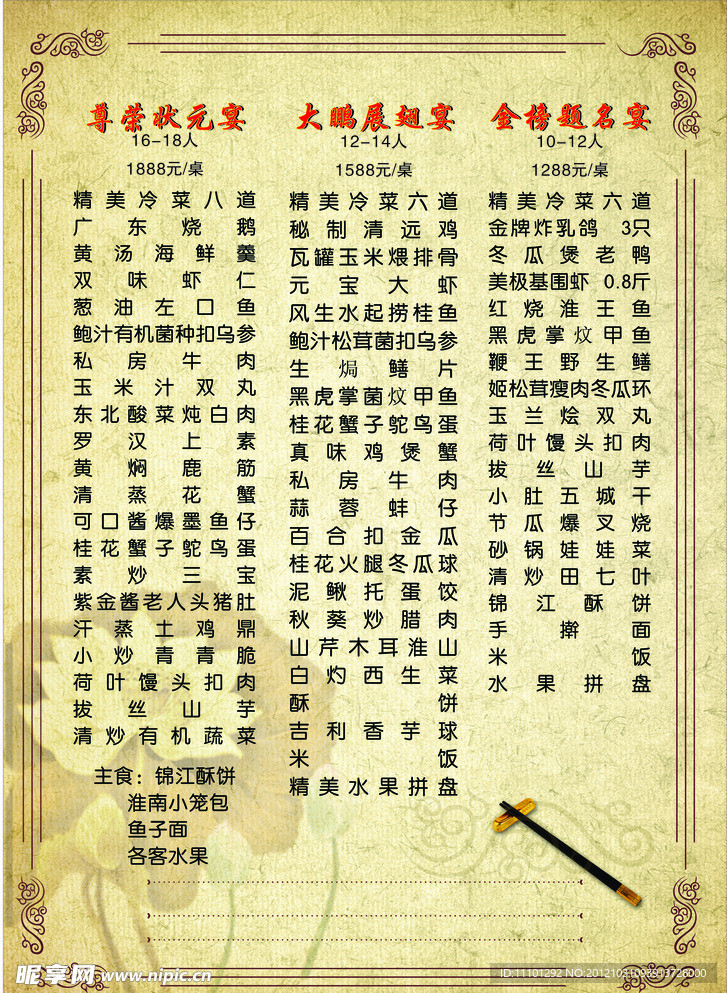 尊荣状元宴
16-18人
1888元/桌
精美冷菜八道
广东烧鹅
黄汤海鲜羹
双味虾仁
葱油左口鱼
鲍汁有机菌种扣乌参
私房牛肉
玉米汁双丸
东北酸菜炖白肉
罗汉上素
黄焖鹿筋
清蒸花蟹
可口酱爆墨鱼仔
桂花蟹子鸵鸟蛋
素炒三宝
紫金酱老人头猪肚
汗蒸土鸡鼎
小炒青青脆
荷叶馒头扣肉
拔丝山芋
清炒有机蔬菜
主食：锦江酥饼
淮南小笼包
鱼子面
各客水果
大鹏展翅宴
12-14人
1588元/桌
精美冷菜六道
秘制清远鸡
瓦罐玉米煨排骨
元宝大虾
风生水起捞桂鱼
鲍汁松茸菌扣乌参
生焗鳝片
黑虎掌菌炆甲鱼
桂花蟹子鸵鸟蛋
真味鸡煲蟹
私房牛肉
蒜蓉蚌仔
百合扣金瓜
桂花火腿冬瓜球
泥鳅托蛋饺
秋葵炒腊肉
山芹木耳淮山
白灼西生菜
酥饼
吉利香芋球
米饭
精美水果拼盘
金榜题名宴
10-12人
1288元/桌
精美冷菜六道
金牌炸乳鸽 3只
冬瓜煲老鸭
美极基围虾 0.8斤
红烧淮王鱼
黑虎掌炆甲鱼
鞭王野生鳝
姬松茸瘦肉冬瓜环
玉兰烩双丸
荷叶馒头扣肉
拔丝山芋
小肚五城干
节瓜爆叉烧
砂锅娃娃菜
清炒田七叶
锦江酥饼
手擀面
米饭
水果拼盘
昵享网 www.nipic.cn